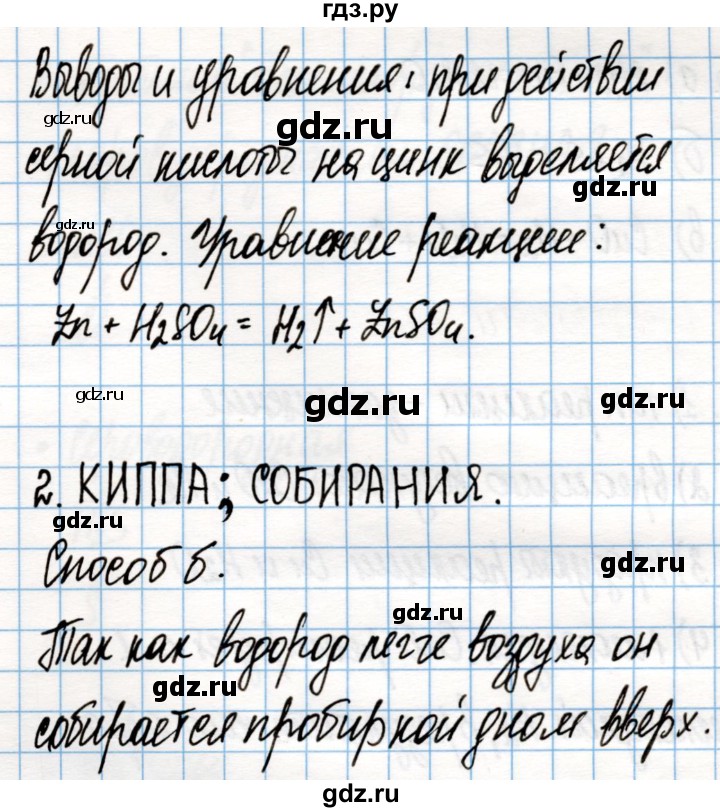 гдз.ру
Выводы и уравнения: при действии
gdz.ru
gdz.ru
серной кислоты на цинк выделяется
gdz.ru
gdz.ru
водород. Уравнение реакции:
Zn + H₂SO₄ = H₂↑ + ZnSO₄.
gdz.ru
gdz.ru
gdz.ru
2. КИППА; СОБИРАНИЯ.
Способ б.
gdz.ru
gdz.ru
Так как водород легче воздуха он
gdz.ru
собирается пробиркой дном вверх.
gdz.ru